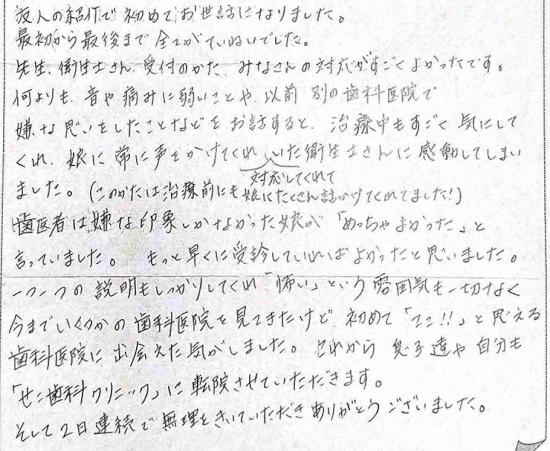 友人の紹介で初めてお世話になりました。
最初から最後まで全てがていねいでした。
先生、衛生士さん、受付のかた、みなさんの対応がすごくよかったです。
何よりも、音や痛みに弱いことや、以前 別の歯科医院で
嫌な思いをしたことなどをお話すると、治療中もすごく気にして
くれ、娘に常に声をかけてくれ、対応してくれていた衛生士さんに感動してしまい
ました。(このかたは治療前にも娘にたくさん話かけてくれてました!)
歯医者は嫌な印象しかなかった娘が「めっちゃよかった」と
言っていました。 もっと早くに受診していればよかったと思いました。
一つ一つの説明もしっかりしてくれ「怖い」という雰囲気も一切なく
今までいくつかの歯科医院を見てきたけど 初めて「ここ!!」と思える
歯科医院に出会えた気がしました。 これから 息子達や自分も
「せこ歯科クリニック」に転院させていただきます。
そして2日連続で無理をきいていただきありがとうございました。